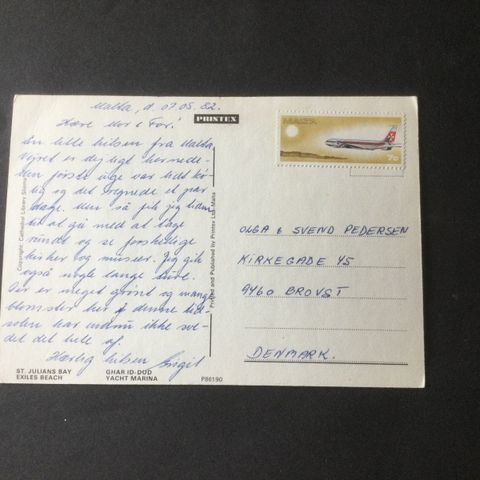 Malta, d. 07.05.82.
Kære Mor & Far!
En lille hilsen fra Malta
vejret er dejligt hernede
den første uge var lidt kø-
lig og det regnede et par
dage. Men så fik jeg tiden
til at gå med at tage
rundt og se forskellige
kirker og museer. Jeg gik
også nogle lange ture.
Der er meget grønt og mange
blomster her, denne tid
solen har endnu ikke sve-
det det hele af.
Kærlig hilsen Birgit
PRINTEX
Copyright: Cathedral Library Sliema
Printed and Published by Printex Ltd. Malta
ST. JULIANS BAY
EXILES BEACH
GHAR ID-DUD
YACHT MARINA
P86190
MALTA
7c
OLGA & SVEND PEDERSEN
KIRKEGADE 45
9460 BROVST
DENMARK.